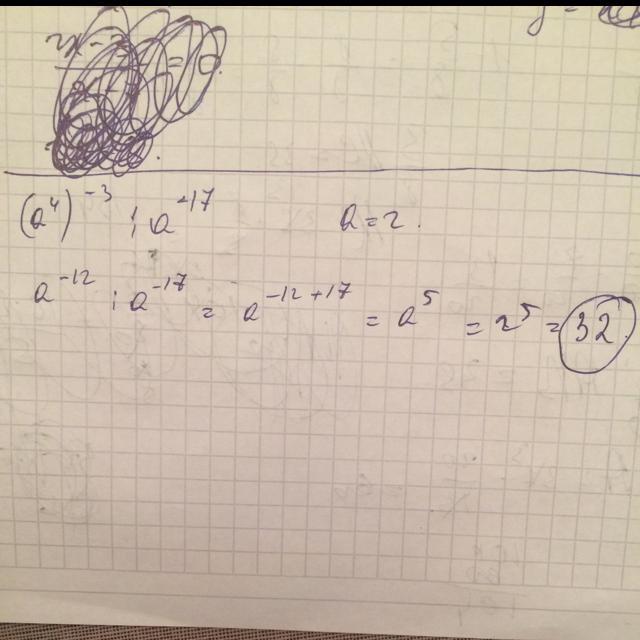 y =
(a⁴)⁻³ : a⁻¹⁷ a = 2.
a⁻¹² : a⁻¹⁷ = a⁻¹²⁺¹⁷ = a⁵ = 2⁵ = 32.